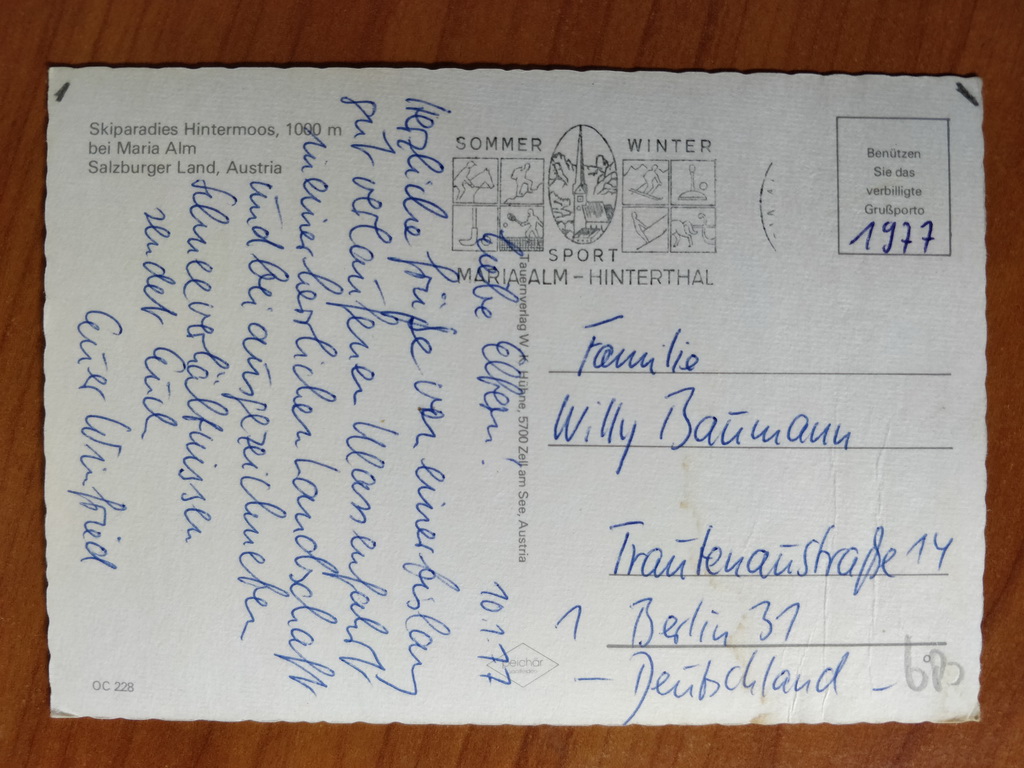 Skiparadies Hintermoos, 1000 m
bei Maria Alm
Salzburger Land, Austria
SOMMER WINTER
SPORT
MARIA ALM - HINTERTHAL
Benützen
Sie das
verbilligte
Grußporto
1977
10.1.77
Liebe Eltern!
Herzliche Grüße von einer bislang
gut verlaufenen Klassenfahrt
in einer herrlichen Landschaft
und bei ausgezeichneten
Schneeverhältnissen
sendet Euch
Euer Winfried
Tauernverlag W. K. Hühne, 5700 Zell am See, Austria
Familie
Willy Baumann
Trautenaustraße 14
1 Berlin 31
- Deutschland -
OC 228